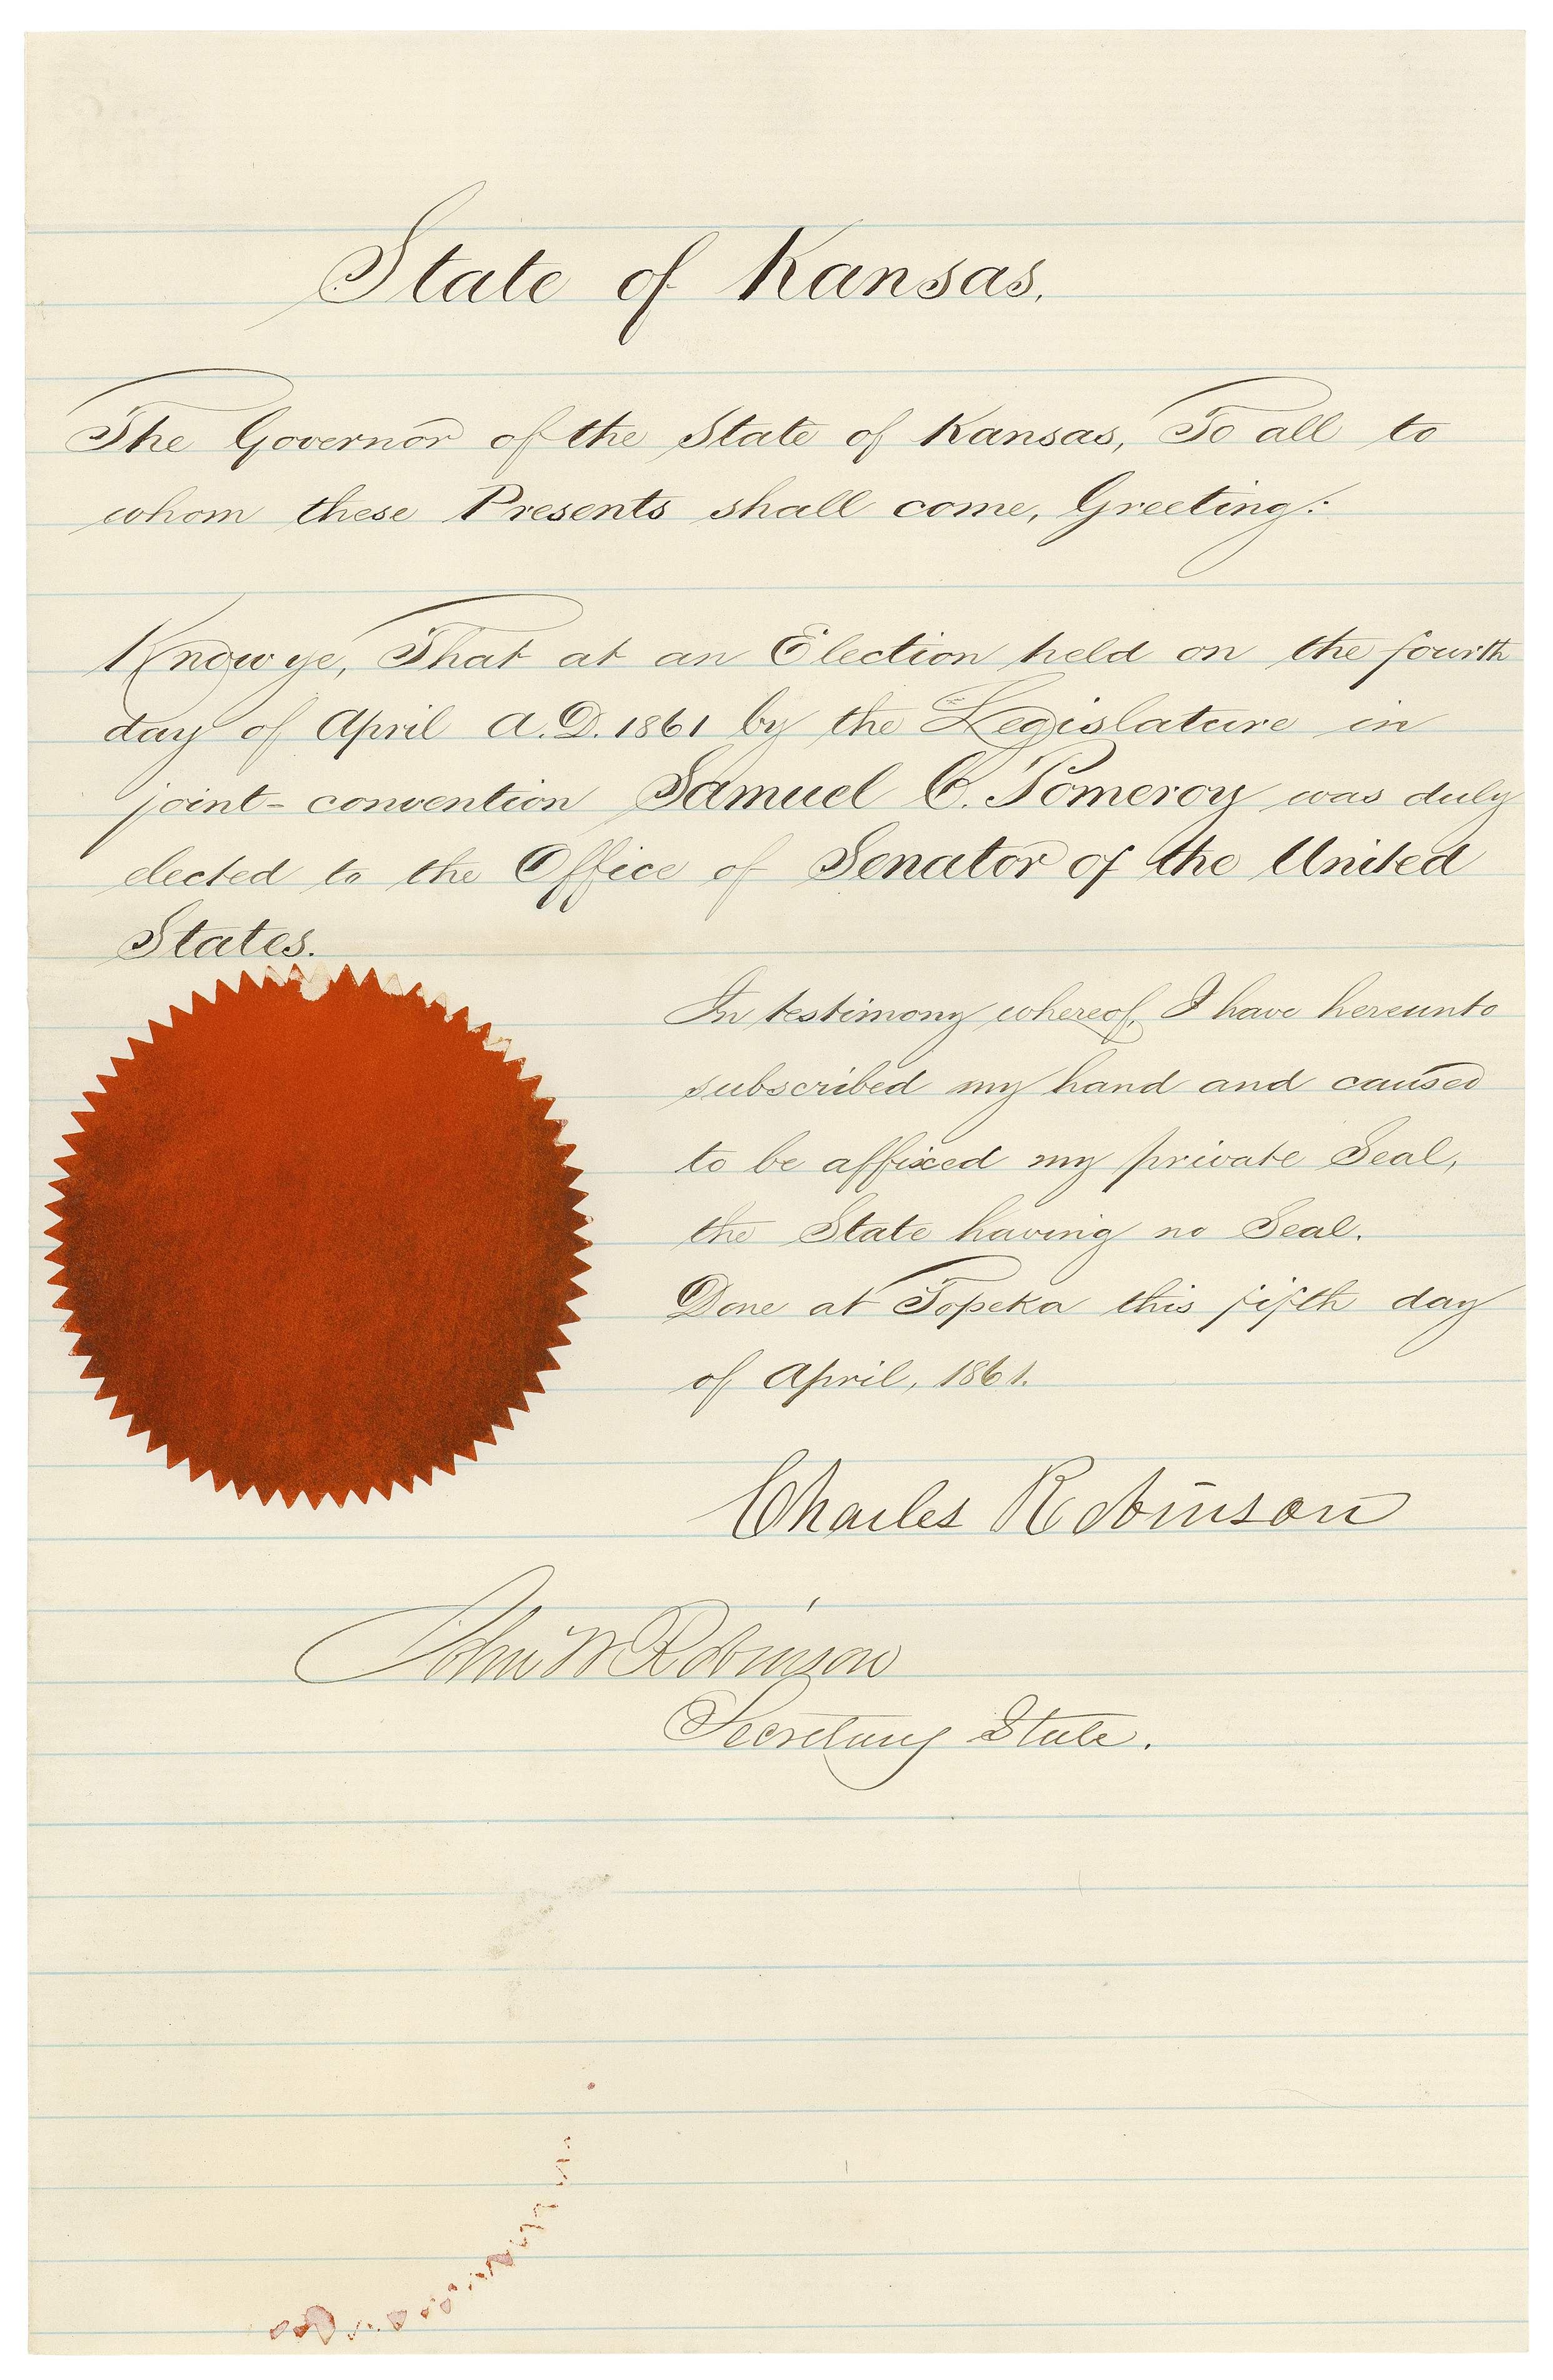 State of Kansas.
The Governor of the State of Kansas, To all to
whom these Presents shall come, Greeting:
Know ye, That at an Election held on the fourth
day of April A.D. 1861 by the Legislature in
joint-convention Samuel C. Pomeroy was duly
elected to the Office of Senator of the United
States.
In testimony whereof, I have hereunto
subscribed my hand and caused
to be affixed my private Seal,
the State having no Seal.
Done at Topeka this fifth day
of April, 1861.
Charles Robinson
John W Robinson
Secretary State.